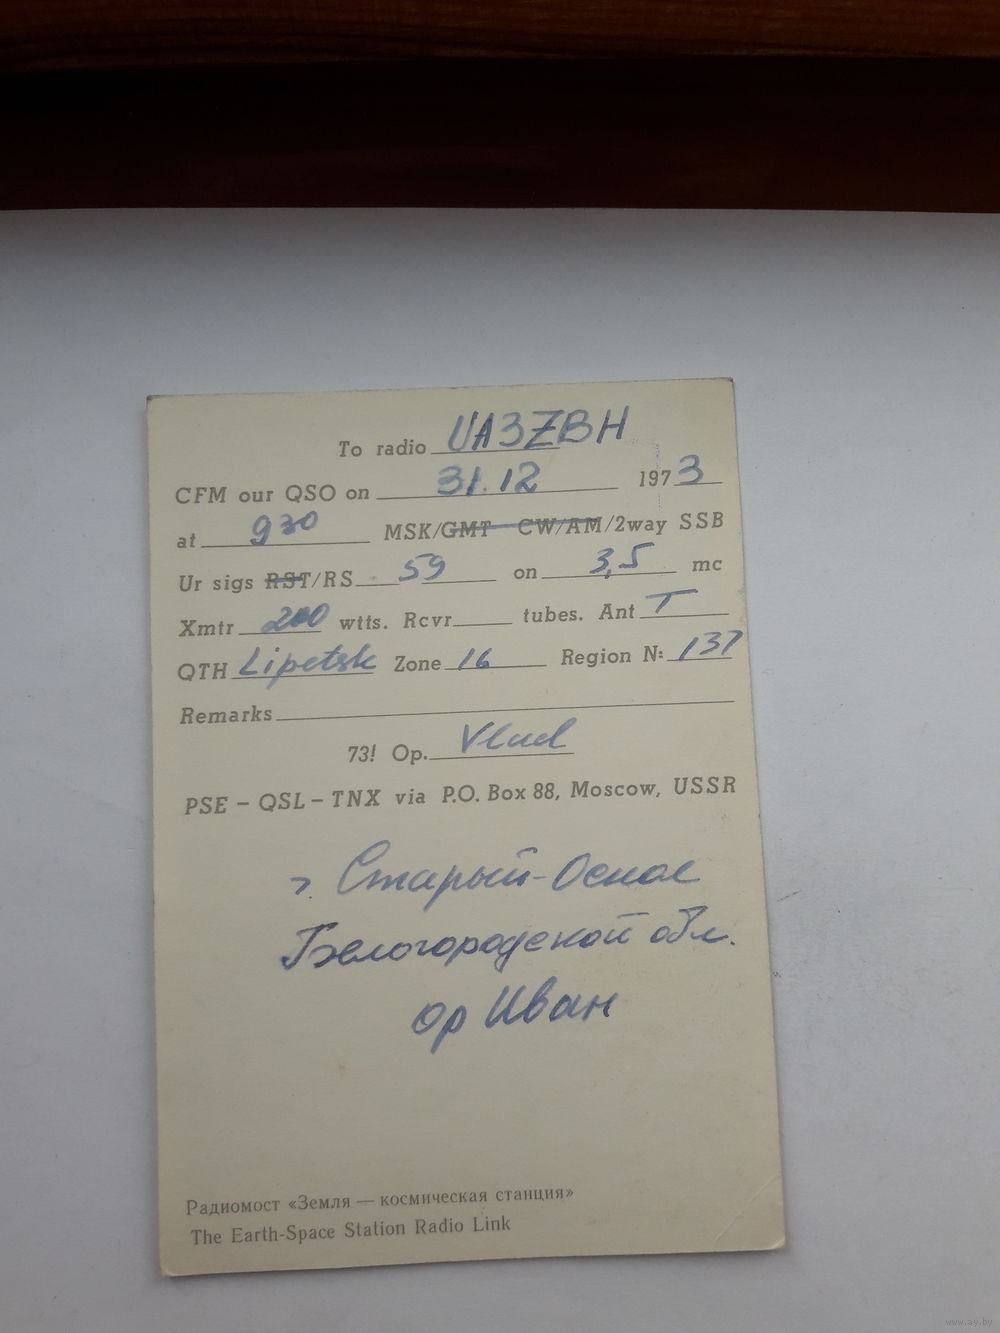 To radio UA3ZBH
CFM our QSO on 31.12 1973
at 930 MSK/GMT CW/AM/2way SSB
Ur sigs RST/RS 59 on 3,5 mc
Xmtr 200 wtts. Rcvr tubes. Ant T
QTH Lipetsk Zone 16 Region №: 137
Remarks
73! Op. Vlad
PSE – QSL – TNX via P.O. Box 88, Moscow, USSR
г. Старый-Оскол
Белогородской обл.
ор Иван
Радиомост «Земля — космическая станция»
The Earth-Space Station Radio Link
www.ay.by